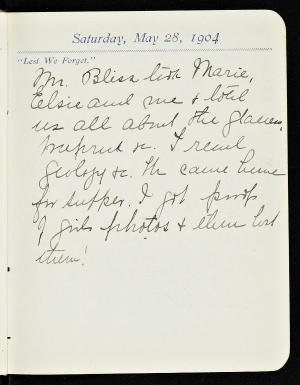 Saturday, May 28, 1904
"Lest We Forget."
Mr. Bliss took Marie,
Elsie and me & told
us all about the glaciers,
&c. I read
Geology &c. He came home
for supper. I got proofs
of girls photos & then lost
them!